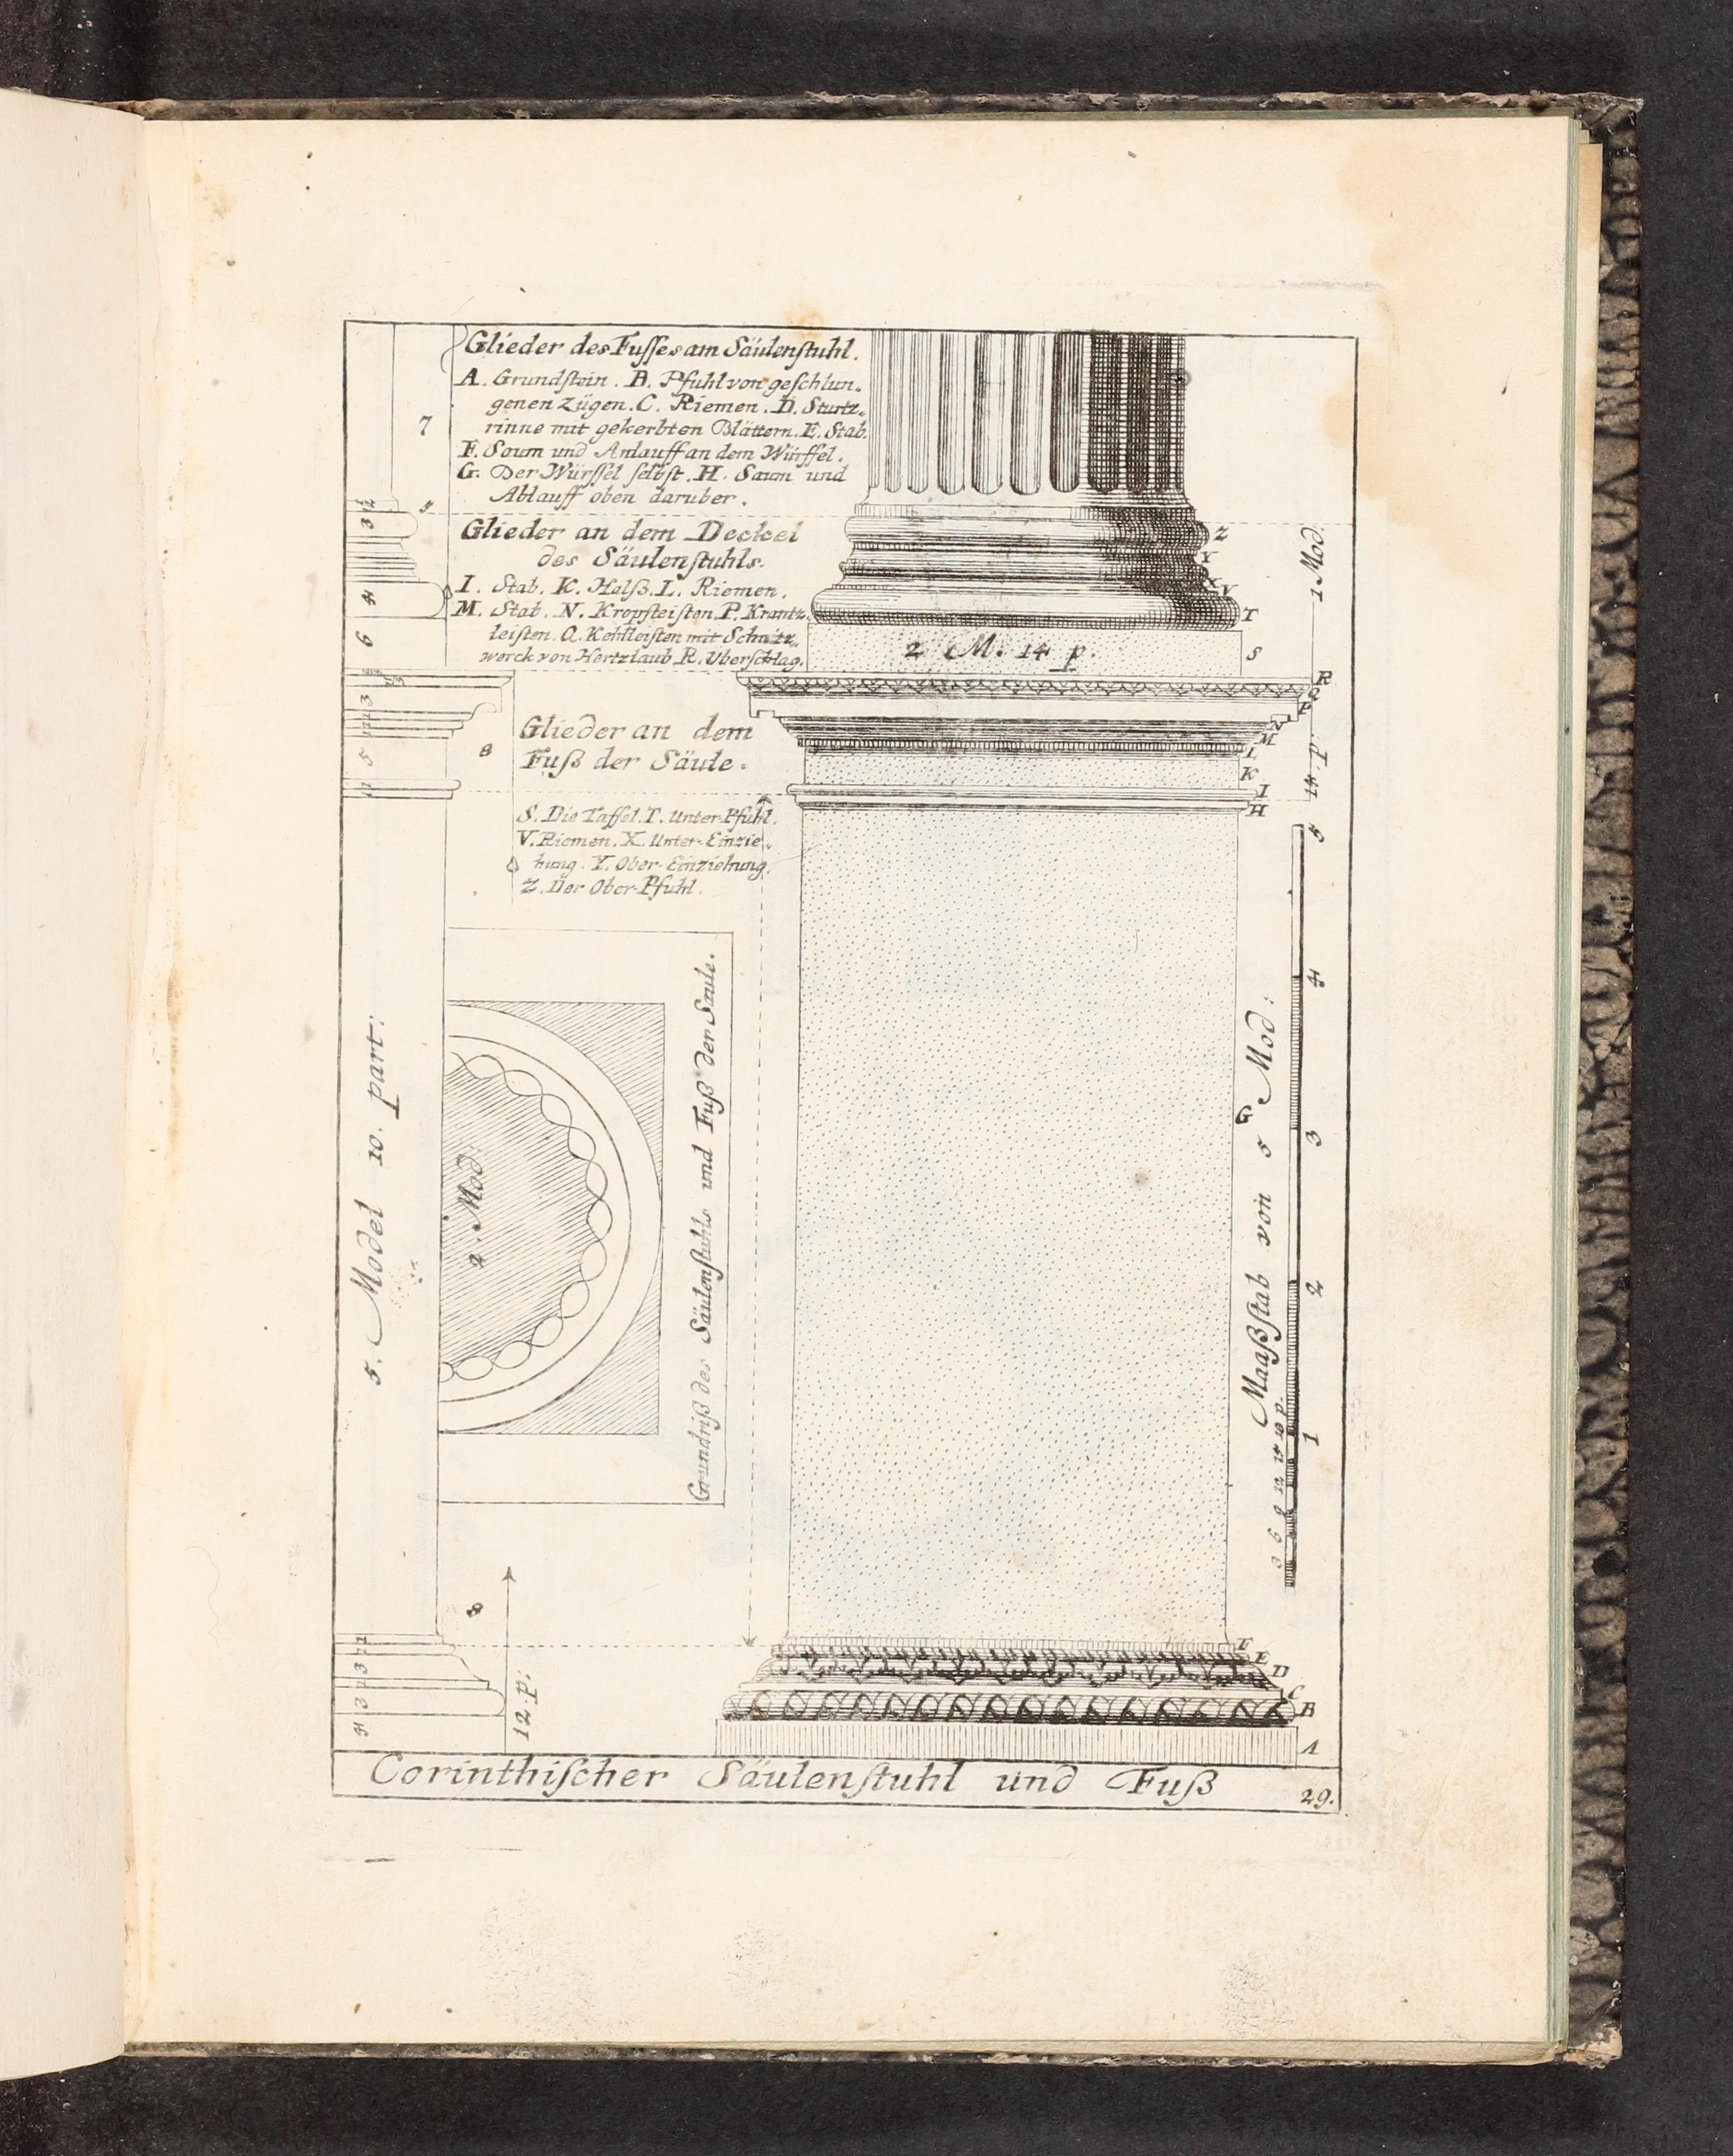 Glieder des Fuſſes am Säulenſtuhl.
A. Grundſtein. B. Pfuhl von geſchlun-
genen Zügen. C. Riemen. D. Sturtz-
rinne mit gekerbten Blättern. E. Stab.
F. Soum und Anlauff an dem Würffel.
G. Der Würffel ſelbſt. H. Saum und
Ablauff oben daruber.
Glieder an dem Deckel
des Säulenſtuhls.
I. Stab. K. Halß. L. Riemen.
M. Stab. N. Kropfleiſten. P. Krantz-
leiſten. Q. Kehlleiſten mit Schnitz-
werck von Hertzlaub. R. Uberſchlag.
Glieder an dem
Fuß der Säule.
S. Die Taffel. T. Unter-Pfuhl.
V. Riemen. X. Unter-Einzie-
hung. Y. Ober-Einziehung.
Z. Der Ober-Pfuhl.
7
5
3
4
6
3
5
8
5. Model 10. part:
2. Mod:
Grundriß des Säulenſtuhls und Fuß der Saule.
8
12. P:
1
3
3
4
2 M. 14 p.
Z
Y
X
V
T
S
R
Q
P
N
M
L
K
I
H
G
F
E
D
C
B
A
1 Mod:
14. P.
Maaßſtab von 5 Mod:
3 6 9 12 14 18 p.
1
2
3
4
5
Corinthiſcher Säulenſtuhl und Fuß
29.